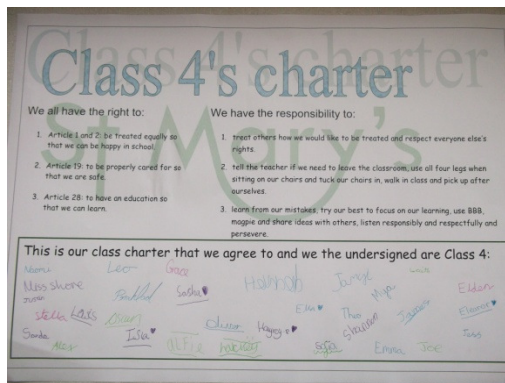 Class 4's charter
St Mary's
We all have the right to:
1. Article 1 and 2: be treated equally so
that we can be happy in school.
2. Article 19: to be properly cared for so
that we are safe.
3. Article 28: to have an education so
that we can learn.
We have the responsibility to:
1. treat others how we would like to be treated and respect everyone else's
rights.
2. tell the teacher if we need to leave the classroom, use all four legs when
sitting on our chairs and tuck our chairs in, walk in class and pick up after
ourselves.
3. learn from our mistakes, try our best to focus on our learning, use BBB,
magpie and share ideas with others, listen responsibly and respectfully and
persevere.
This is our class charter that we agree to and we the undersigned are Class 4:
Leo Grace
Miss Sasha Hannah Maya Elden
Stella Ella Theo James Eleanor
Oliver
Alex Alfie Sofia Emma Joe